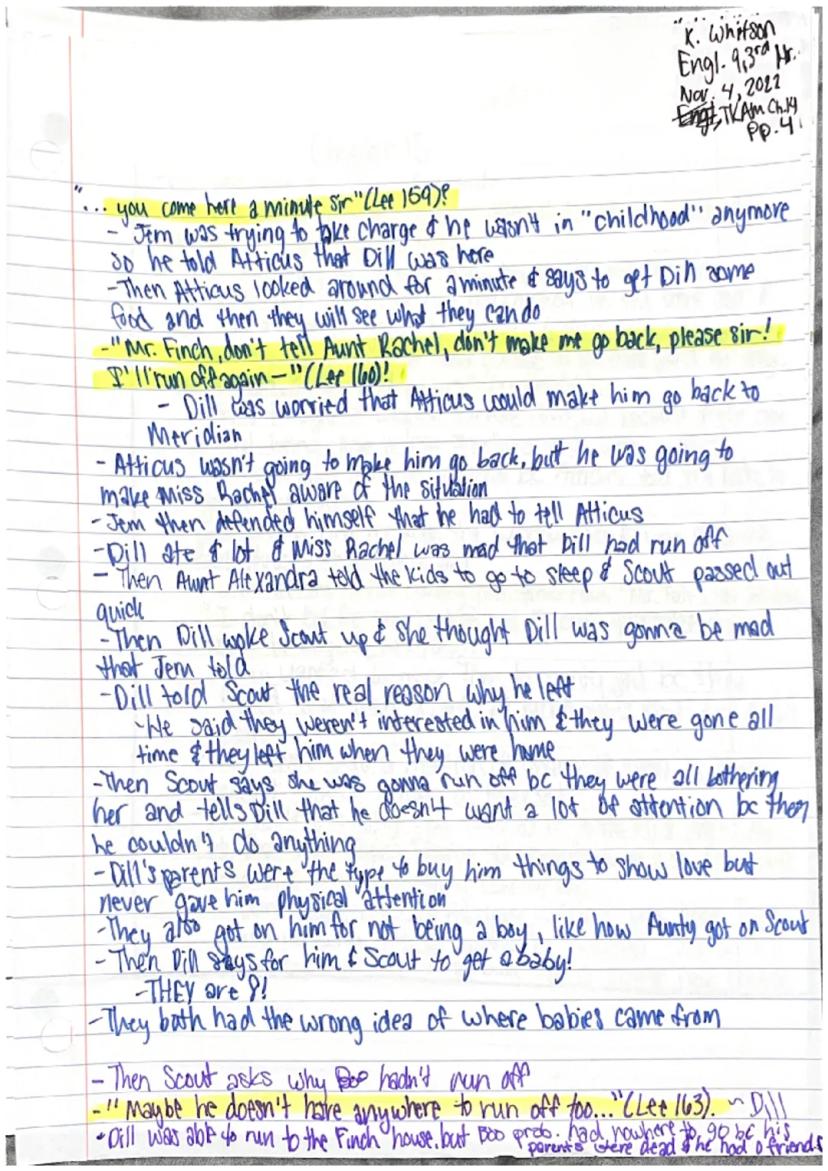 "K. Whitson
Engl. 9, 3rd Hr.
Nov. 4, 2022
Engl, TKAM Ch.14
pp. 4
"... you come here a minute sir" (Lee 159)!
- Jem was trying to take charge & he wasn't in "childhood" anymore
so he told Atticus that Dill was here
-Then Atticus looked around for a minute & says to get Dill some
food and then they will see what they can do
-"Mr. Finch, don't tell Aunt Rachel, don't make me go back, please sir!
I'll run off again-" (Lee 160)!
- Dill was worried that Atticus would make him go back to
Meridian
- Atticus wasn't going to make him go back, but he was going to
make Miss Rachel aware of the situation
-Jem then defended himself that he had to tell Atticus
-Dill ate a lot & Miss Rachel was mad that Dill had run off
- Then Aunt Alexandra told the kids to go to sleep & Scout passed out
quick
-Then Dill woke Scout up & she thought Dill was gonna be mad
that Jem told
-Dill told Scout the real reason why he left
-He said they weren't interested in him & they were gone all
time & they left him when they were home
-Then Scout says she was gonna run off bc they were all bothering
her and tells Dill that he doesn't want a lot of attention bc then
he couldn't do anything
-Dill's parents were the type to buy him things to show love but
never gave him physical attention
-They also got on him for not being a boy, like how Aunty got on Scout
-Then Dill says for him & Scout to get a baby!
-THEY are 8!
-They both had the wrong idea of where babies came from
- Then Scout asks why Boo hadn't run off
-"Maybe he doesn't have anywhere to run off too..." (Lee 163). ~ Dill
-Dill was able to run to the Finch house, but Boo prob. had nowhere to go bc his
parents were dead & he had 0 friends